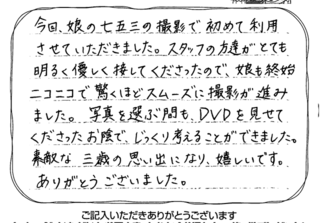 今回、娘の七五三の撮影で初めて利用
させていただきました。スタッフの方達がとても
明るく優しく接してくださったので、娘も終始
ニコニコで驚くほどスムーズに撮影が進み
ました。写真を選ぶ間も、DVDを見せて
くださったお陰で、じっくり考えることができました。
素敵な三歳の思い出になり、嬉しいです。
ありがとうございました。
ご記入いただきありがとうございます